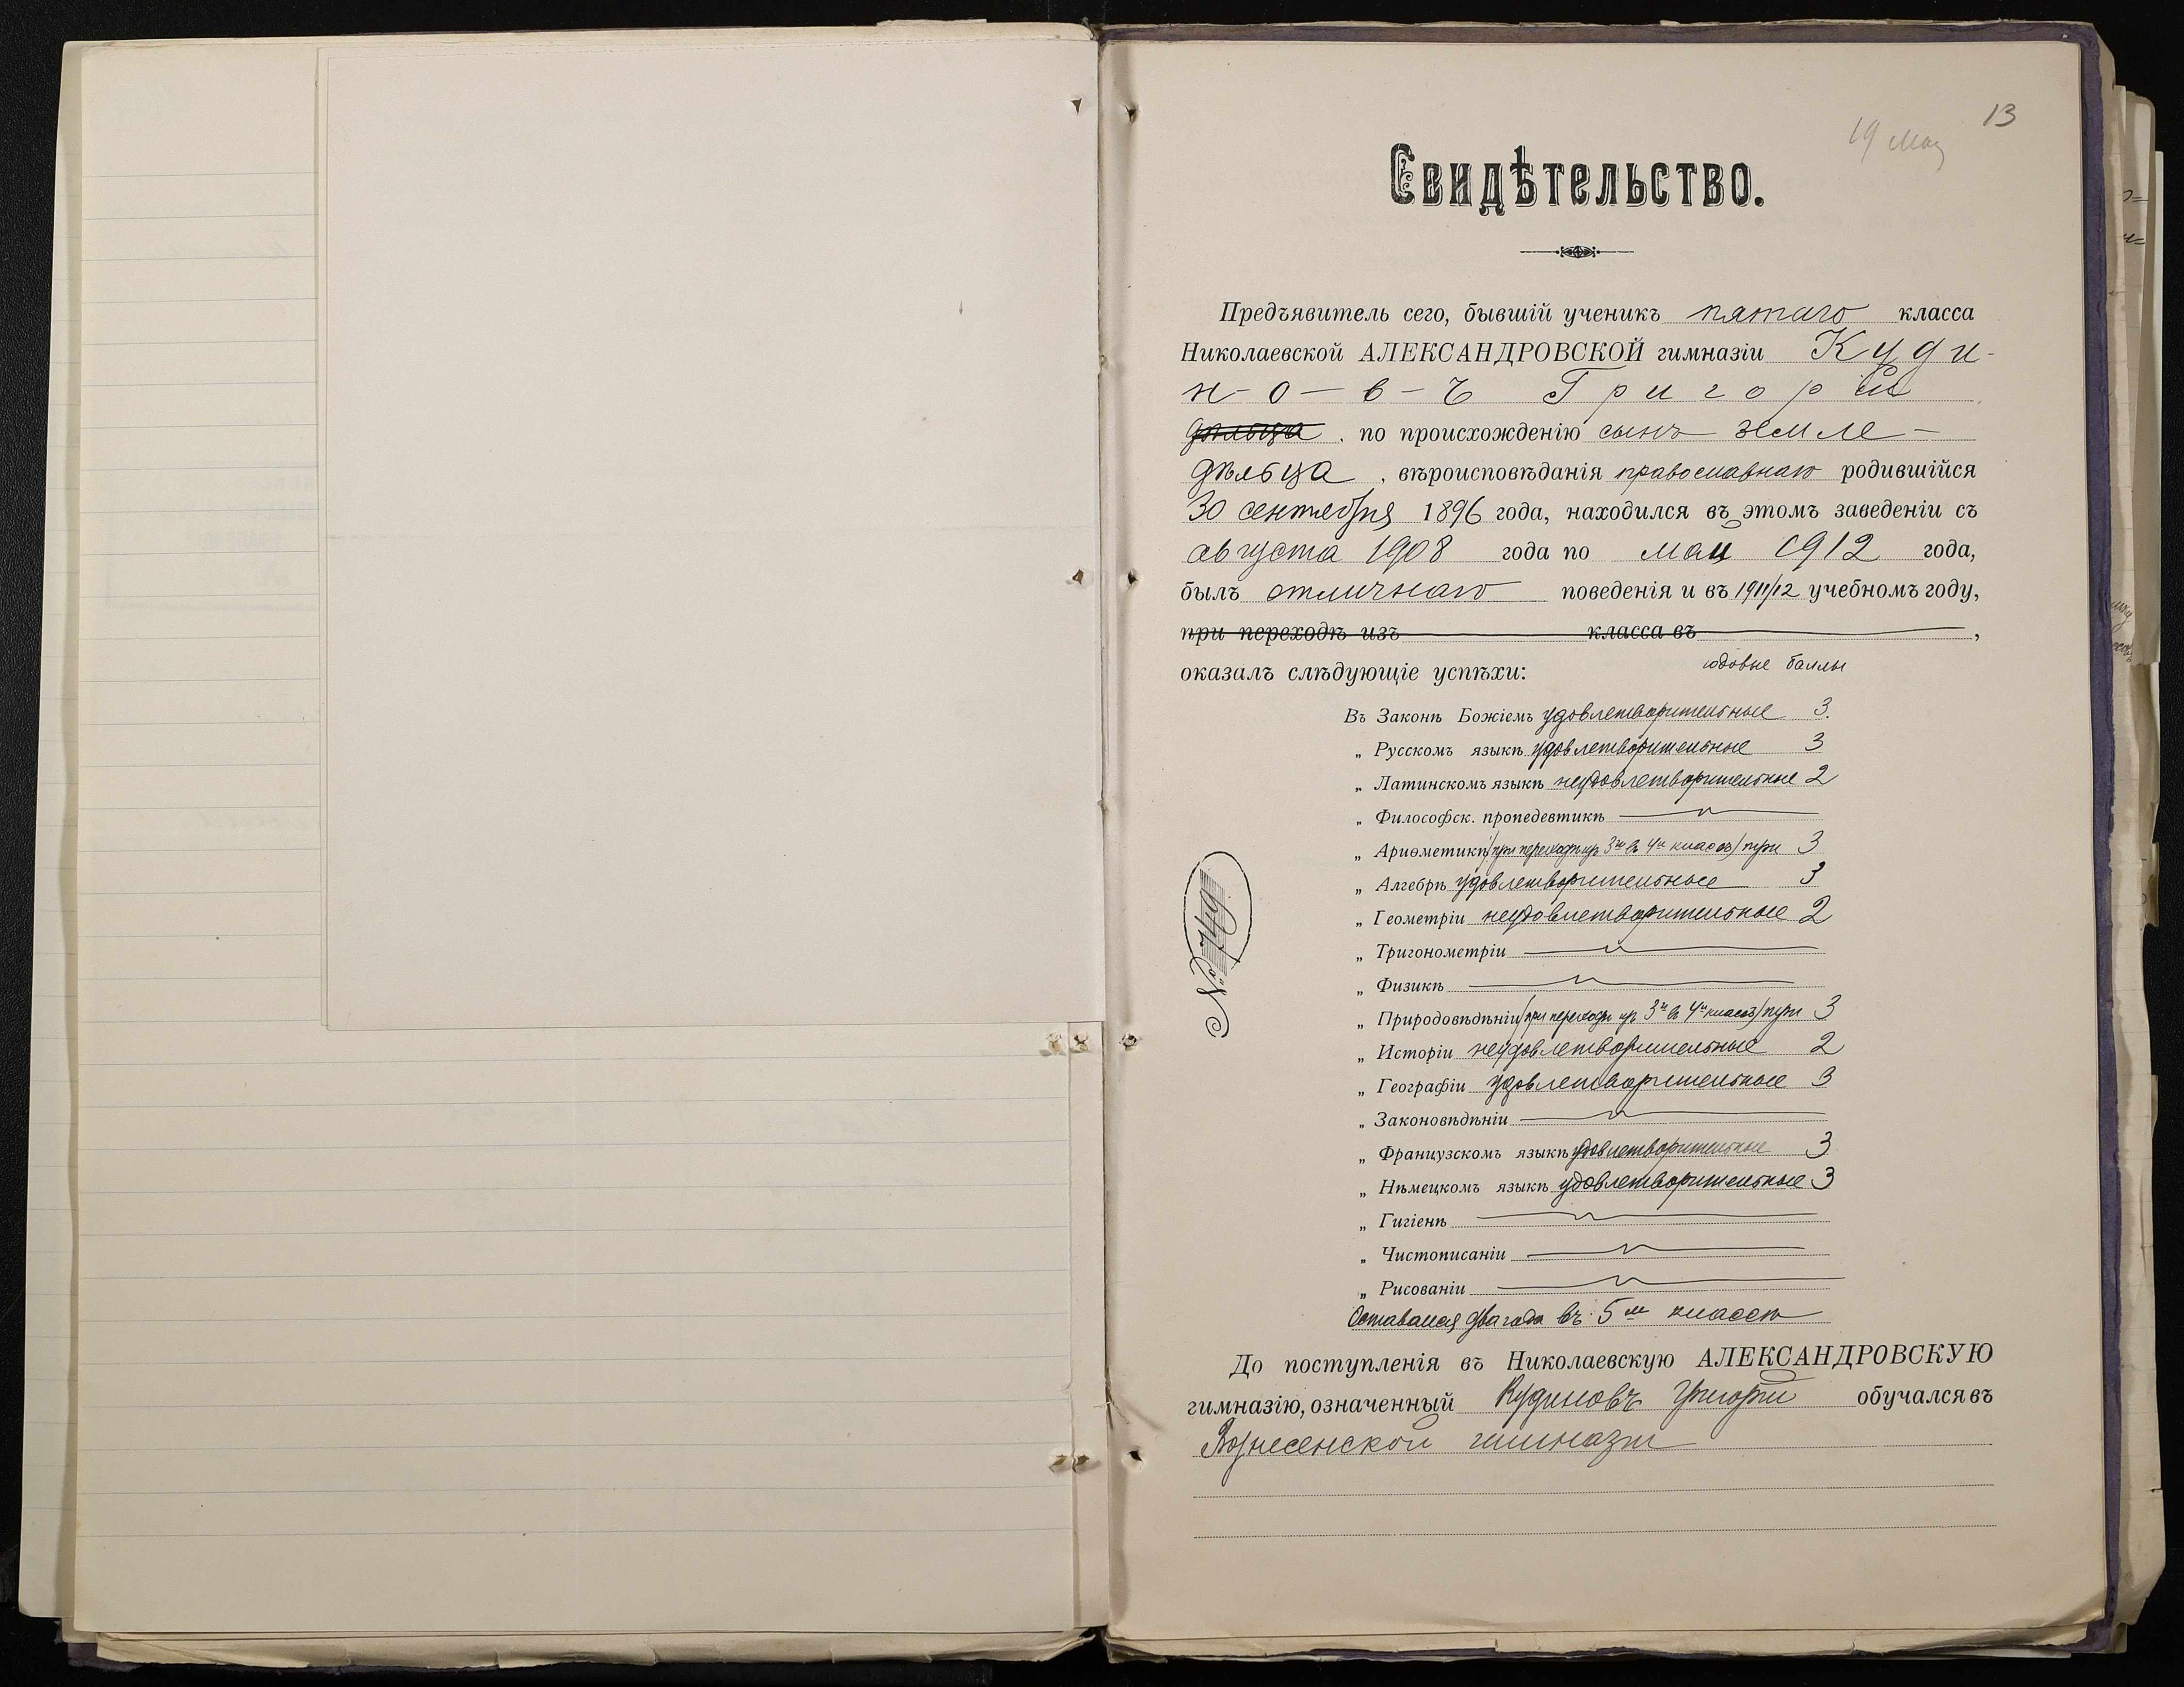 13
19 Мая
Свидѣтельство.
Предъявитель сего, бывшій ученикъ пятаго класса
Николаевской АЛЕКСАНДРОВСКОЙ гимназіи Куди-
н-о-в-ъ Григорій
дѣльца, по происхожденію сынъ земле-
дѣльца, вѣроисповѣданія православнаго родившійся
30 сентября 1896 года, находился въ этомъ заведеніи съ
августа 1908 года по май 1912 года,
былъ отличнаго поведенія и въ 1911/12 учебномъ году,
при переходѣ изъ класса въ ,
годовые баллы
оказалъ слѣдующіе успѣхи:
Въ Законѣ Божіемъ удовлетворительные 3.
„ Русскомъ языкѣ удовлетворительные 3
„ Латинскомъ языкѣ неудовлетворительные 2
„ Философск. пропедевтикѣ
„ Ариѳметикѣ (при переходѣ изъ 3го въ 4й классъ) три 3
„ Алгебрѣ удовлетворительные 3
„ Геометріи неудовлетворительные 2
„ Тригонометріи
„ Физикѣ
„ Природовѣдѣніи (при переходѣ изъ 3го въ 4й классъ) три 3
„ Исторіи неудовлетворительные 2
„ Географіи удовлетворительные 3
„ Законовѣдѣніи
„ Французскомъ языкѣ удовлетворительные 3
„ Нѣмецкомъ языкѣ удовлетворительные 3
„ Гигіенѣ
„ Чистописаніи
„ Рисованіи
Оставался два года въ 5м классѣ
№ 749
До поступленія въ Николаевскую АЛЕКСАНДРОВСКУЮ
гимназію, означенный Кудиновъ Григорій обучался въ
Вознесенской гимназіи